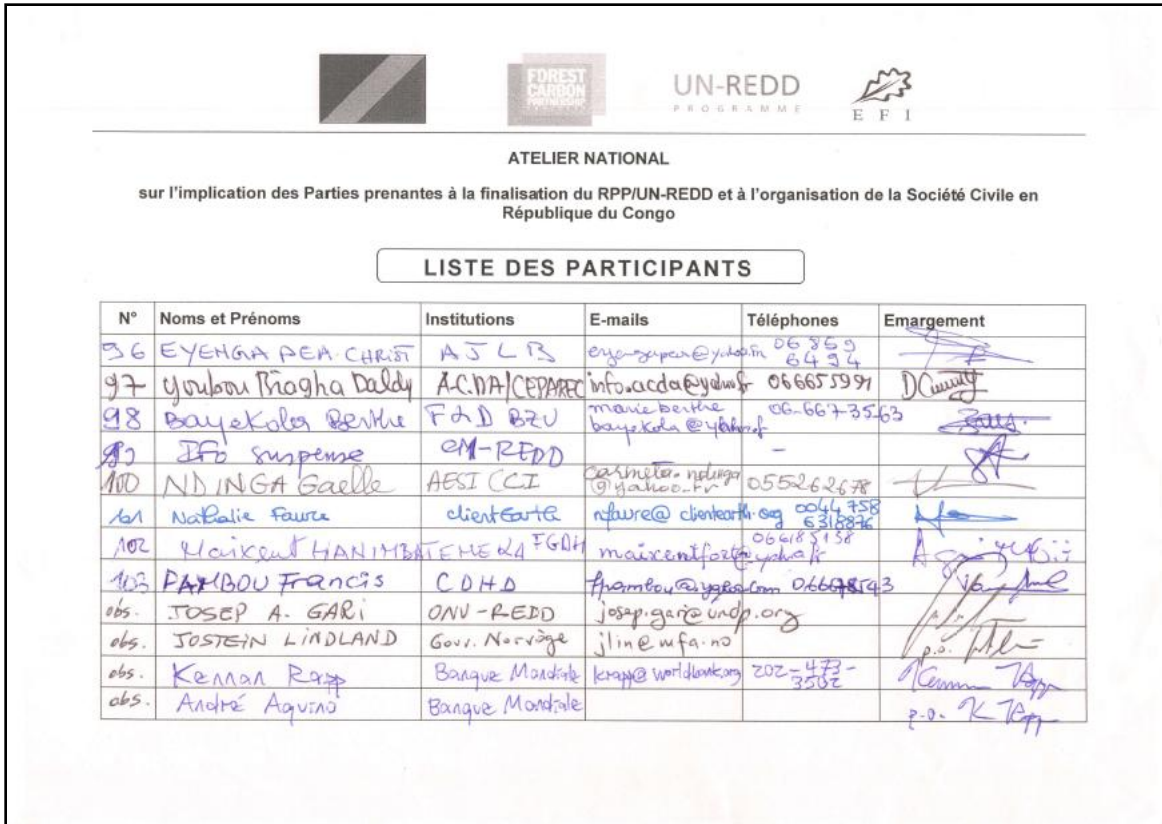 FOREST CARBON PARTNERSHIP
UN-REDD
PROGRAMME
EFI
ATELIER NATIONAL
sur l'implication des Parties prenantes à la finalisation du RPP/UN-REDD et à l'organisation de la Société Civile en
République du Congo
LISTE DES PARTICIPANTS
N° Noms et Prénoms Institutions E-mails Téléphones Emargement
96 EYENGA PEA CHRIST AJLB 06 859 6494
97 Daldy A.C.DA/CEPAREC info.acda@yahoo.fr 066655991
98 Bayekola Berthe BZV 06-667-35-63
99 Ifo suspense CM-REDD -
100 NDINGA Gaelle AESI CCI carmela-ndinga@yahoo.fr 055262678
101 Nathalie Faure ClientEarth nfaure@clientearth.org 0044 758 6318876
102 Maixent FGDH
103 PAMBOU Francis CDHD
obs. JOSEP A. GARI ONV-REDD josep.gari@undp.org
obs. JOSTEIN LINDLAND Gouv. Norvège jlin@mfa.no p.o.
obs. Kennan Rapp Banque Mondiale krapp@worldbank.org 202-473-3502
obs. André Aquino Banque Mondiale p.o. K Rapp